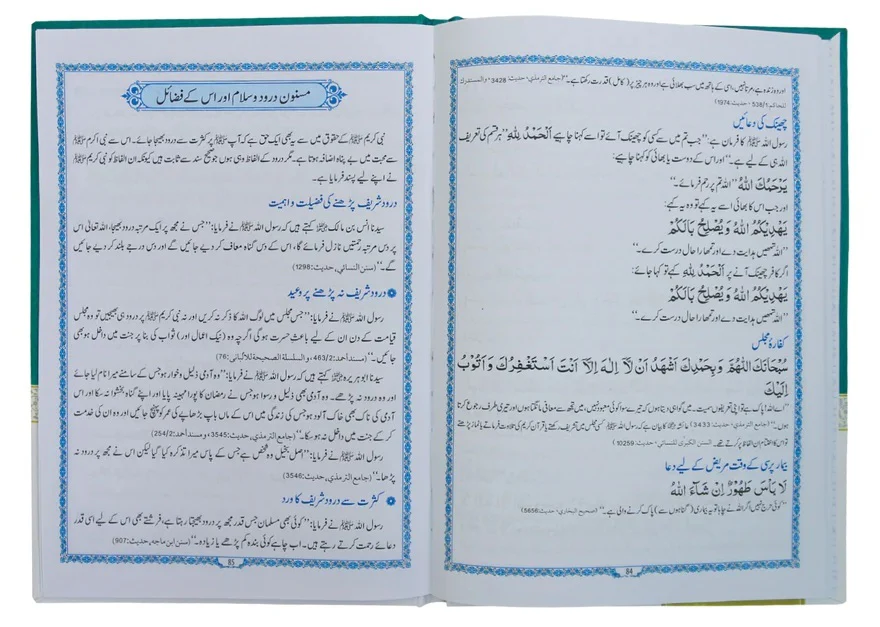 اور وہ زندہ ہے، مرتا نہیں، اسی کے ہاتھ میں سب بھلائی ہے اور وہ ہر چیز پر (کامل) قدرت رکھتا ہے۔" (جامع الترمذي، حديث: 3428، والمستدرك
للحاكم: 538/1، حديث: 1974)
چھینک کی دعائیں
رسول اللہ ﷺ کا فرمان ہے: "جب تم میں سے کسی کو چھینک آئے تو اسے کہنا چاہیے اَلْحَمْدُ لِلّٰهِ "ہر قسم کی تعریف
اللہ ہی کے لیے ہے۔" اور اس کے دوست یا بھائی کو کہنا چاہیے:
يَرْحَمُكَ اللّٰهُ "اللہ تم پر رحم فرمائے۔"
اور جب اس کا بھائی اسے یہ کہے تو وہ یہ کہے:
يَهْدِيْكُمُ اللّٰهُ وَيُصْلِحُ بَالَكُمْ
"اللہ تمھیں ہدایت دے اور تمھارا حال درست کرے۔"
اگر کافر چھینک آنے پر اَلْحَمْدُ لِلّٰهِ کہے تو کہا جائے:
يَهْدِيْكُمُ اللّٰهُ وَيُصْلِحُ بَالَكُمْ
"اللہ تمھیں ہدایت دے اور تمھارا حال درست کرے۔"
کفارۂ مجلس
سُبْحَانَكَ اللّٰهُمَّ وَبِحَمْدِكَ اَشْهَدُ اَنْ لَّاۤ اِلٰهَ اِلَّاۤ اَنْتَ اَسْتَغْفِرُكَ وَاَتُوْبُ
اِلَيْكَ
"اے اللہ! تو پاک ہے اپنی تعریفوں سمیت۔ میں گواہی دیتا ہوں کہ تیرے سوا کوئی معبود نہیں، میں تجھ سے معافی مانگتا ہوں اور تیری طرف رجوع کرتا
ہوں۔" (جامع الترمذي، حديث: 3433) عائشہ کا بیان ہے کہ رسول اللہ ﷺ کسی مجلس میں تشریف رکھتے یا قرآن کریم کی تلاوت فرماتے یا نماز پڑھتے
تو اس کا اختتام ان الفاظ پر کرتے تھے۔ السنن الكبرى للنسائي، حديث: 10259
بیمار پرسی کے وقت مریض کے لیے دعا
لَا بَأْسَ طَهُوْرٌ اِنْ شَآءَ اللّٰهُ
"کوئی حرج نہیں اگر اللہ نے چاہا تو یہ بیماری (گناہوں سے) پاک کرنے والی ہے۔" (صحيح البخاري، حديث: 5656)
84
مسنون درود و سلام اور اس کے فضائل
نبی کریم ﷺ کے حقوق میں سے یہ بھی ایک حق ہے کہ آپ ﷺ پر کثرت سے درود بھیجا جائے۔ اس سے نبی اکرم ﷺ
سے محبت میں بے پناہ اضافہ ہوتا ہے۔ مگر درود کے الفاظ وہی ہوں جو صحیح سند سے ثابت ہیں کیونکہ ان الفاظ کو نبی کریم ﷺ
نے اپنے لیے پسند فرمایا ہے۔
درود شریف پڑھنے کی فضیلت و اہمیت
سیدنا انس بن مالک کہتے ہیں کہ رسول اللہ ﷺ نے فرمایا: "جس نے مجھ پر ایک مرتبہ درود بھیجا، اللہ تعالیٰ اس
پر دس مرتبہ رحمتیں نازل فرمائے گا، اس کے دس گناہ معاف کر دیے جائیں گے اور دس درجے بلند کر دیے جائیں
گے۔" (سنن النسائي، حديث: 1298)
درود شریف نہ پڑھنے پر وعید
رسول اللہ ﷺ نے فرمایا: "جس مجلس میں لوگ اللہ کا ذکر نہ کریں اور نہ نبی کریم ﷺ پر درود ہی بھیجیں تو وہ مجلس
قیامت کے دن ان کے لیے باعث حسرت ہوگی اگرچہ وہ (نیک اعمال اور) ثواب کی بنا پر جنت میں داخل ہو بھی
جائیں۔" (مسند أحمد: 463/2، والسلسلة الصحيحة للألباني: 76)
سیدنا ابو ہریرہ کہتے ہیں کہ رسول اللہ ﷺ نے فرمایا: "وہ آدمی ذلیل و خوار ہو جس کے سامنے میرا نام لیا جائے
اور وہ درود نہ پڑھے۔ وہ آدمی بھی ذلیل و رسوا ہو جس نے رمضان کا پورا مہینہ پایا اور اپنے گناہ بخشوا نہ سکا اور اس
آدمی کی ناک بھی خاک آلود ہو جس کی زندگی میں اس کے ماں باپ بڑھاپے کی عمر کو پہنچ جائیں اور وہ ان کی خدمت
کر کے جنت میں داخل نہ ہو سکا۔" (جامع الترمذي، حديث: 3545، ومسند أحمد: 254/2)
رسول اللہ ﷺ نے فرمایا: "اصل بخیل وہ شخص ہے جس کے پاس میرا تذکرہ کیا گیا لیکن اس نے مجھ پر درود نہ
پڑھا۔" (جامع الترمذي، حديث: 3546)
کثرت سے درود شریف کا ورد
رسول اللہ ﷺ نے فرمایا: "کوئی بھی مسلمان جس قدر مجھ پر درود بھیجتا رہتا ہے، فرشتے بھی اس کے لیے اسی قدر
دعائے رحمت کرتے رہتے ہیں۔ اب چاہے کوئی بندہ کم پڑھے یا زیادہ۔" (سنن ابن ماجه، حديث: 907)
85